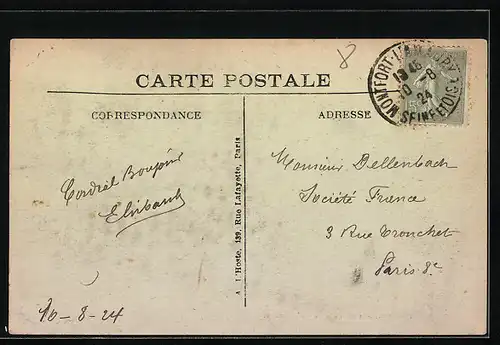 8
CARTE POSTALE
CORRESPONDANCE
ADRESSE
MONTFORT-L'AMAURY
SEINE ET OISE
19 45
10 - 8
24
15
Cordial Bonjour
A. L'Hoste, 139, Rue Lafayette, Paris
Monsieur Dellenbach
Société France
3 Rue Tronchet
Paris 8e
10-8-24